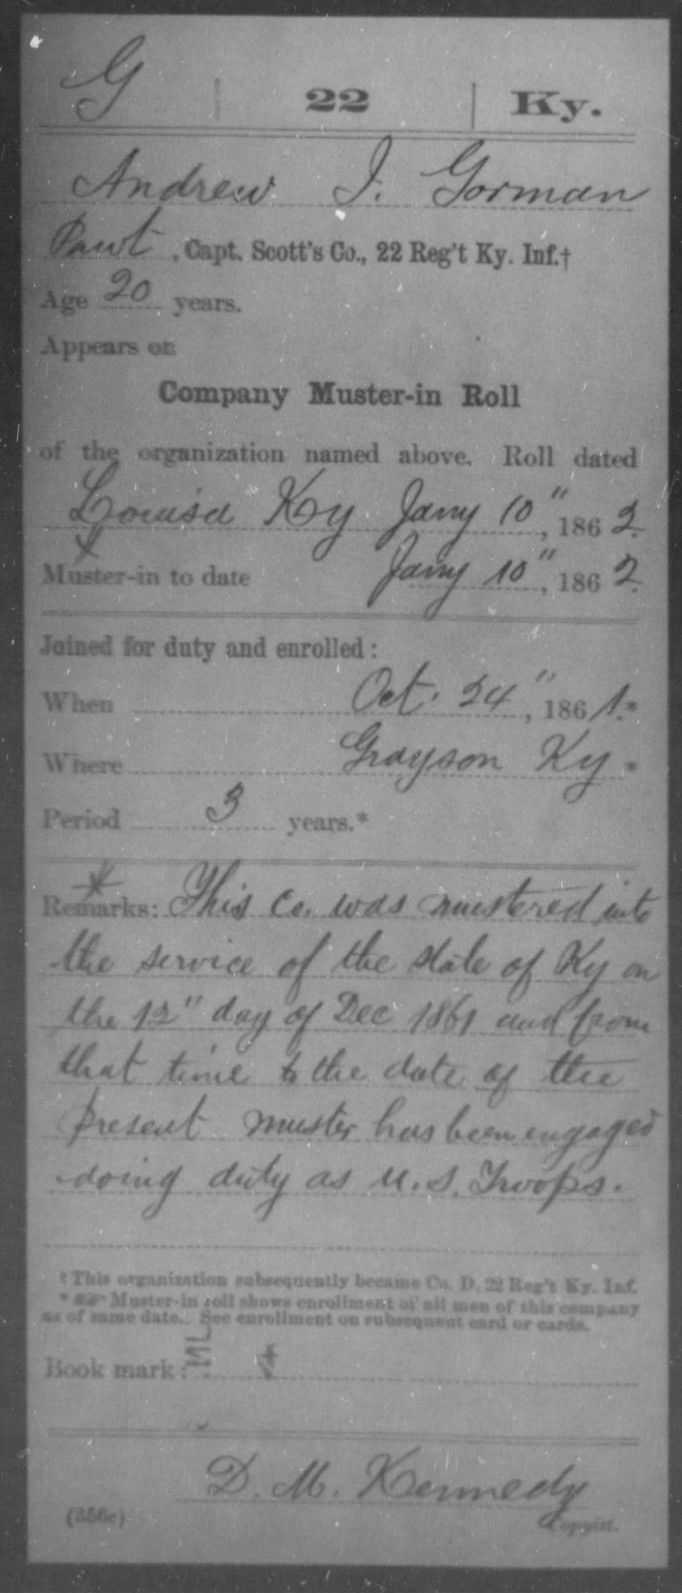 G | 22 | Ky.
Andrew J. Gorman
Pavt, Capt. Scott's Co., 22 Reg't Ky. Inf.†
Age 20 years.
Appears on
Company Muster-in Roll
of the organization named above. Roll dated
Louisa Ky Jany 10", 1862.
Muster-in to date Jany 10", 1862.
Joined for duty and enrolled:
When Oct. 24", 1861.*
Where Grayson Ky.*
Period 3 years.*
Remarks: This Co. was mustered into
the service of the state of Ky on
the 12" day of Dec 1861 and from
that time to the date of the
present muster has been engaged
doing duty as U.S. Troops.
† This organization subsequently became Co. D, 22 Reg't Ky. Inf.
* Muster-in roll shows enrollment of all men of this company
as of same date. See enrollment on subsequent card or cards.
Book mark:
D. M. Kennedy
(356c) Copyist.